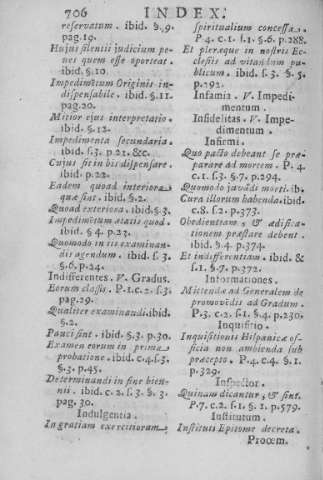 706 INDEX.
reservatum. ibid. §.9.
pag.19.
Hujus silentii judicium pe-
nes quem esse oporteat.
ibid. §.10.
Impedimētum Originis in-
dispensabile. ibid. §.11.
pag.20.
Mitior ejus interpretatio.
ibid. §.12.
Impedimenta secundaria.
ibid. s.3. p.21. &c.
Cujus sit in his dispensare.
ibid. p.22.
Eadem quoad interiora
quæ sint. ibid. §.2.
Quoad exteriora. ibid. §.3.
Impedimētum ætatis quod.
ibid. §4. p.23.
Quomodo in iis examinan-
dis agendum. ibid. s.3.
§.6. p.24.
Indifferentes. V. Gradus.
Eorum classis. P.1.c.2. s.3.
pag.29.
Qualiter examinandi. ibid.
§.2.
Pauci sint. ibid. §.3. p.30.
Examen eorum in prima
probatione. ibid. c.4.s.3.
§.3. p.45.
Determinandi in fine bien-
nii. ibid. c.2. s.3. §.3.
pag.30.
Indulgentia.
Ingratiam exercitiorum
spiritualium concessa.
P.4. c.1. s.1. §.6. p.288.
Et pleræque in nostris Ec-
clesiis ad vitandum pu-
blicum. ibid. s.3. §.5.
p.292.
Infamia. V. Impedi-
mentum.
Infidelitas. V. Impe-
dimentum.
Infirmi.
Quo pacto debeant se præ-
parare ad mortem. P.4.
c.1. s.3. §.7. p.294.
Quomodo juvādi morti. ib.
Cura illorum habenda. ibid.
c.8. s.2. p.373.
Obedientiam, & ædifica-
tionem præstare debent.
ibid. §.4. p.374.
Et indifferentiam. ibid. &
s.1. §.7. p.372.
Informationes.
Mittendæ ad Generalem de
promovēdis ad Gradum.
P.3. c.2. s.1. §.4. p.230.
Inquisitio.
Inquisitionis Hispanicæ of-
ficia non ambienda sub
præcepto. P.4. c.4. §.1.
p.329.
Inspector.
Quinam dicantur, & sint.
P.7. c.2. s.1. §.1. p.579.
Institutum.
Instituti Epitome decreta.
Proœm.